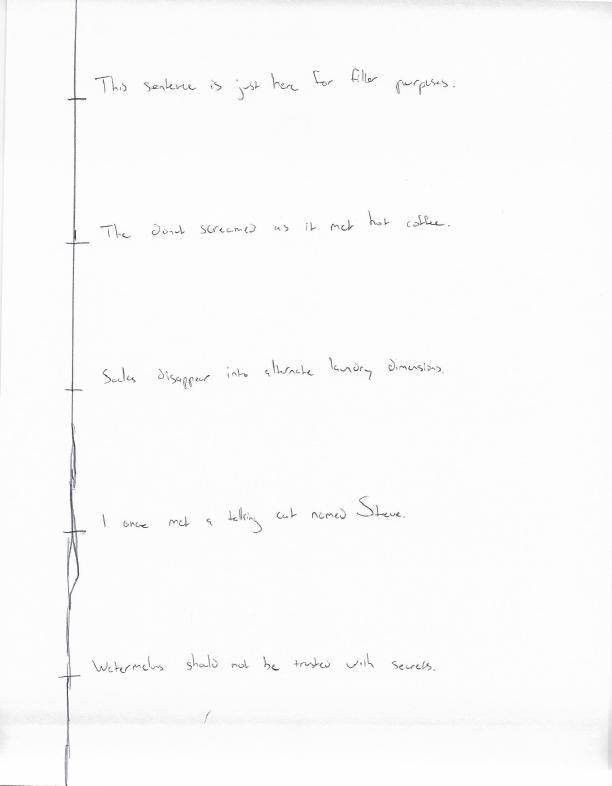 This sentence is just here for filler purposes.
The donut screamed as it met hot coffee.
Socks disappear into alternate laundry dimensions.
I once met a talking cat named Steve.
Watermelons should not be trusted with secrets.